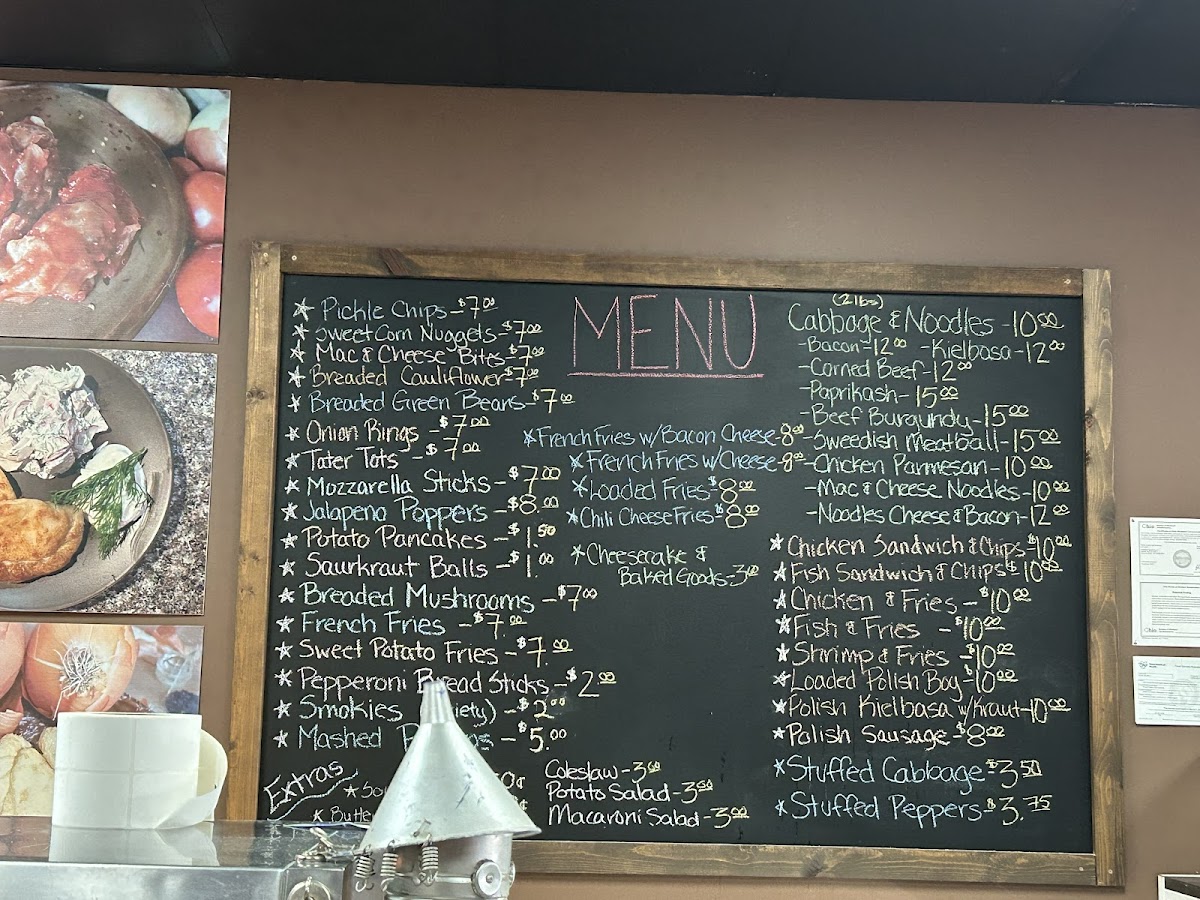 ★ Pickle Chips - $7.00
★ Sweet Corn Nuggets - $7.00
★ Mac & Cheese Bites - $7.00
★ Breaded Cauliflower - $7.00
★ Breaded Green Beans - $7.00
★ Onion Rings - $7.00
★ Tater Tots - $7.00
★ Mozzarella Sticks - $7.00
★ Jalapeno Poppers - $8.00
★ Potato Pancakes - $1.50
★ Saurkraut Balls - $1.00
★ Breaded Mushrooms - $7.00
★ French Fries - $7.00
★ Sweet Potato Fries - $7.00
★ Pepperoni Bread Sticks - $2.00
★ Smokies - $2.00
★ Mashed - $5.00
Extras
MENU
★ French Fries w/Bacon Cheese - 8.00
★ French Fries w/Cheese - 8.00
★ Loaded Fries - $8.00
★ Chili Cheese Fries - $8.00
★ Cheesecake &
Baked Goods - 3.00
Coleslaw - 3.00
Potato Salad - 3.50
Macaroni Salad - 3.00
(2 lbs)
Cabbage & Noodles - 10.00
- Bacon - 12.00 - Kielbasa - 12.00
- Corned Beef - 12.00
- Paprikash - 15.00
- Beef Burgundy - 15.00
- Sweedish Meatball - 15.00
- Chicken Parmesan - 10.00
- Mac & Cheese Noodles - 10.00
- Noodles Cheese & Bacon - 12.00
★ Chicken Sandwich & Chips - $10.00
★ Fish Sandwich & Chips $10.00
★ Chicken & Fries - $10.00
★ Fish & Fries - $10.00
★ Shrimp & Fries - $10.00
★ Loaded Polish Boy - $10.00
★ Polish Kielbasa w/Kraut - 10.00
★ Polish Sausage - $8.00
★ Stuffed Cabbage - $3.50
★ Stuffed Peppers - $3.75